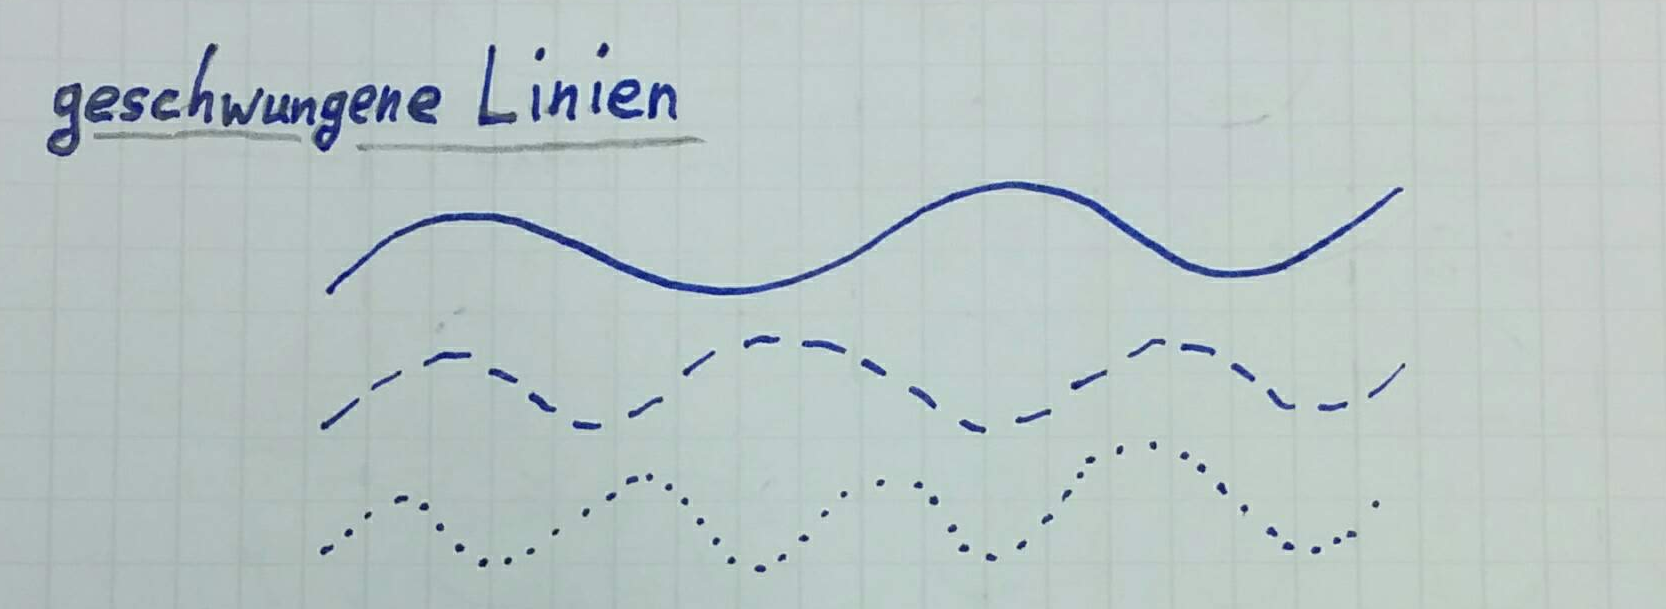 geschwungene Linien